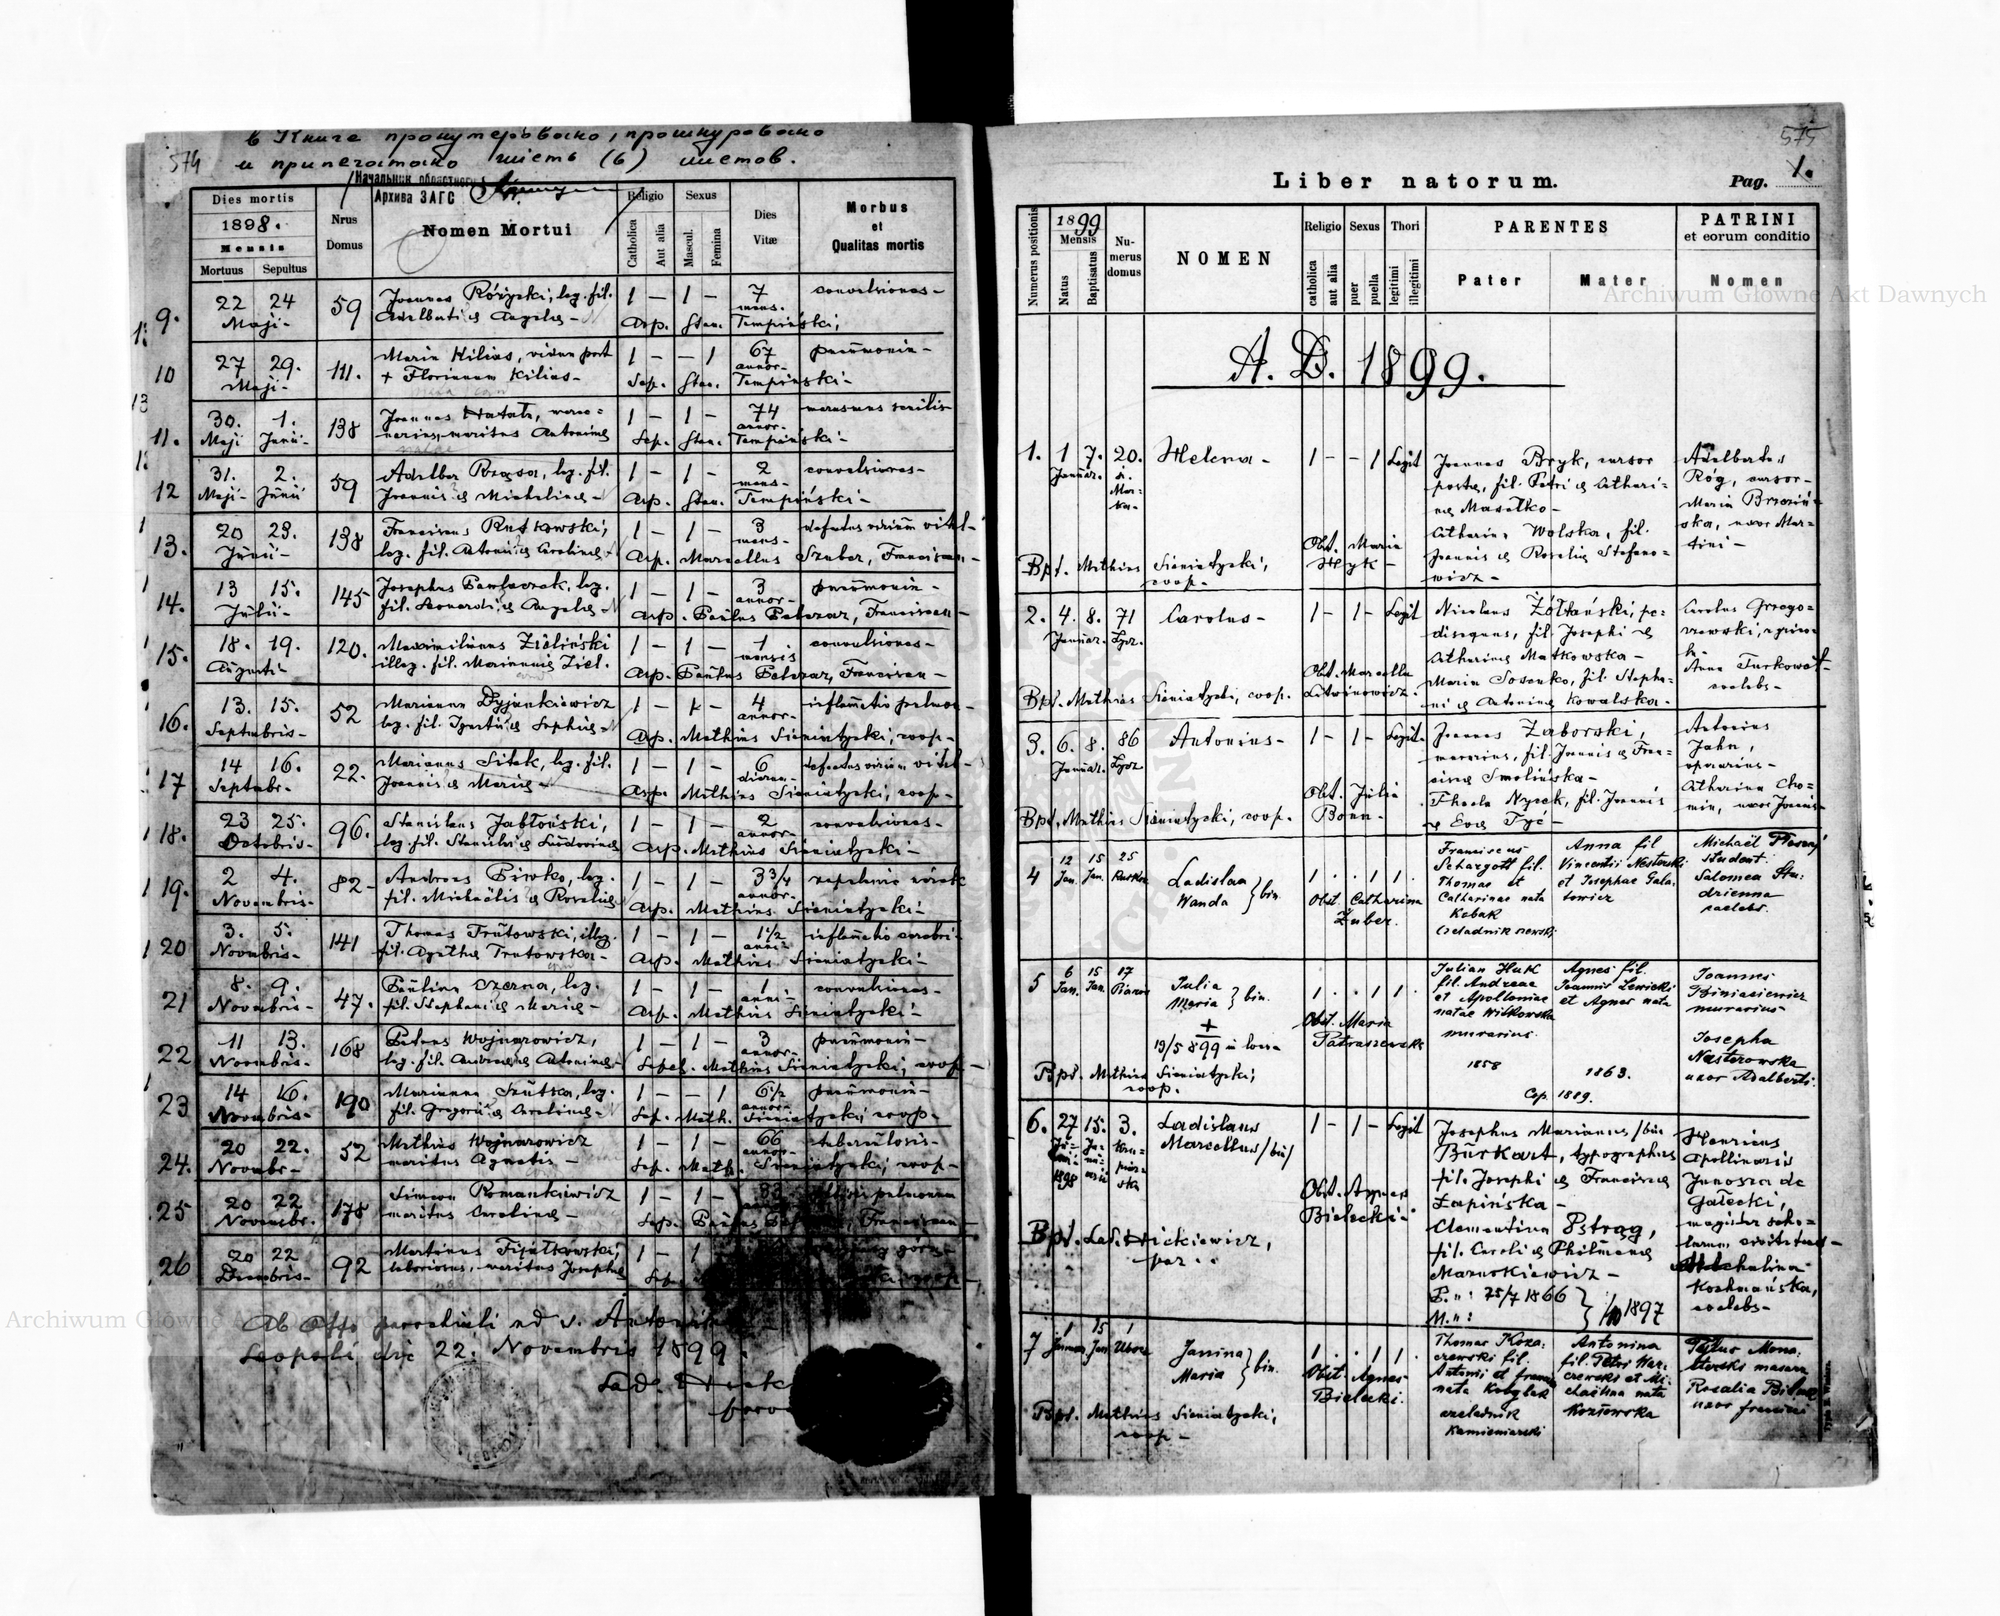 в Книге пронумеровано, прошнуровано
и припечатано шесть (6) листов.
574
Начальник областного
Архива ЗАГС
Dies mortis
1898.
Mensis
Mortuus Sepultus
Nrus Domus
Nomen Mortui
Religio
Catholica
Aut alia
Sexus
Mascul.
Femina
Dies Vitæ
Morbus et Qualitas mortis
9. 22 24 Maji- 59 Joannes Różycki, leg. fil. 1 - 1 - 7 mens. convulsiones-
Adalberti & Angelae- Asp. Stan. Tempiński,
10 27 29. Maji- 111. Maria Kilias, vidua post 1 - - 1 67 annor- pneumonia-
+ Florianum Kilias- Sep. Stan. Tempinski-
11. 30. Maji 1. Junii- 138 Joannes Hatala, merce= 1 - 1 - 74 annor- marasmus senilis
narius, maritus Antoninae Sep. Stan. Tempiński-
12 31. Maji- 2. Junii 59 Adalber Rząsa, leg. fil. 1 - 1 - 2 mens- convulsiones-
Joannis & Michalinae- Asp. Stan. Tempiński-
13. 20 23. Junii- 138 Franciscus Rutkowski, 1 - 1 - 3 mens- defectus virium vital-
leg. fil. Antonii & Carolinae- Asp. Marcellus Szuber, Franciscan-
14. 13 15. Julii- 145 Josephus Pawlaczek, leg. 1 - 1 - 3 annor- pneumonia-
fil. Leonardi & Angelae- Asp. Paulus Pelczar, Franciscan-
15. 18. 19. Augusti- 120. Maximilianus Zieliński 1 - 1 - 1 mensis convulsiones-
illeg. fil. Mariannae Ziel. Asp. Paulus Pelczar, Franciscan-
16. 13. 15. Septembris- 52 Marianna Dyjankiewicz 4 annor- inflamatio pulmon-
leg. fil. Ignatii & Sophiae- Asp. Mathias Sieniatycki, coop-
17 14 16. Septembr- 22. Marianus Sitek, leg. fil. 1 - 1 - 6 dierum- defectus virium vital-
Joannis & Mariae- Asp. Mathias Sieniatycki, coop-
18. 23 25. Octobris- 96. Stanislaus Jabłoński, 1 - 1 - 2 annor- convulsiones-
leg. fil. Stanislai & Ludovicae Asp. Mathias Sieniatycki-
19. 2 4. Novembris- 82- Andreas Piwko, leg. 1 - 1 - 3 3/4 annor-
fil. Michaëlis & Rosaliae Asp. Mathias Sieniatycki-
20 3. 5. Novembris- 141 Thomas Trutowski, illeg. 1 - 1 - 1 1/2 anni- inflamatio cerebri-
fil. Agathae Trutowska- Asp. Mathias Sieniatycki-
21 8. 9. Novembris- 47. Paulina Czerna, leg. 1 - 1 - 1 anni- convulsiones-
fil. Stephani & Mariae- Asp. Mathias Sieniatycki-
22 11 13. Novembris- 168 Petrus Wojnarowicz, 1 - 1 - 3 annor- pneumonia-
leg. fil. Andreae & Antoninae- Sepel. Mathias Sieniatycki, coop-
23 14 16. Novembris- 190 Marianna leg. 1 - - 1 6 1/2 annor- pneumonia-
fil. Gregorii & Carolinae- Sep. Math. Sieniatycki coop-
24. 20 22. Novembr- 52 Mathias Wojnarowicz 1 - 1 - 66 annor- tuberculosis-
maritus Agnetis- Sep. Math. Sieniatycki, coop-
25 20 22 Novembr. 178 Simeon Romankiewicz 1 - 1 - pulmonum
maritus Carolinae- Sep. Paulus Franciscan-
26 20 22 Decembris- 92 Martinus Fijałkowski, 1 - 1
laboriosus, maritus Josephae Sep. coop-
Ab Offo parochiali ad s. Antonium
Leopoli die 22. Novembris 1899.
Lad. Hick
575
Liber natorum. Pag. 1.
Numerus positionis
1899
Mensis
Natus
Baptisatus
Numerus domus
NOMEN
Religio
catholica
aut alia
Sexus
puer
puella
Thori
legitimi
illegitimi
PARENTES
Pater
Mater
PATRINI
et eorum conditio
Nomen
A. D. 1899.
1. 1 7. Januar. 20. Helena- 1 - - 1 Legit
Joannes Bryk, cursor
postae, fil. Petri & Cathari=
nae Masełko-
Catharina Wolska, fil.
Joannis & Rosaliae Stefano=
wicz-
Adalbertus
Róg, cursor-
Maria Brzeziń=
ska, uxor Mar=
tini-
Obst. Maria
Hryk-
Bpt. Mathias Sieniatycki,
coop.-
2. 4. 8. Januar. 71 Łycz. Carolus- 1 - 1 - Legit
Nicolaus Żółtański, pe=
disequus, fil. Josephi &
Catharinae Matkowska-
Maria Sosenko, fil. Stepha=
ni & Antoninae Kowalska-
Carolus Grzego=
rzewski,
Anna Turkowat-
coelebs-
Obst. Marcella
Litwinowicz.
Bpt. Mathias Sieniatycki, coop.
3. 6. 8. Januar. 86 Łycz Antonius- 1 - 1 - Legit.
Joannes Zaborski,
murarius, fil. Joannis & Fran=
ciscae Smolińska-
Thecla Nyrek, fil. Joannis
& Evae Tyć-
Antonius
Jahn,
operarius-
Catharina Cho=
min, uxor Joannis-
Obst. Julia
Bonn-
Bpt. Mathias Sieniatycki, coop.
4 12 Jan. 15 Jan. 25 Ladislaa
Wanda } bin. 1 . . 1 1 .
Franciscus
Schargott fil.
Thomae et
Catharinae nata
Kobak
czeladnik szewski
Anna fil
Vincentii Nestorski
et Josephae Gala=
towicz
Michaël
student.
Salomea Stu=
dzienna
caelebs.
Obst. Catharina
Zuber.
5 6 Jan. 15 Jan. 17 Julia
Maria } bin. 1 . . 1 1 .
+
19/5 899 in
Julian Huk
fil. Andreae
et Apolloniae
natae Witkowska
murarius.
1858
Agnes fil.
Joannis Lewicki
et Agnes nata
1863.
Cop. 1889.
Joannes
Biniasiewicz
murarius-
Josepha
Nestorowska
uxor Adalberti.
Obst. Maria
Bpt. Mathias Sieniatycki,
coop.
6. 27 15. 3. Ladislaus
Marcellus /bin/ 1 - 1 - Legit
Josephus Marianus /bin
Burkart, typographus
fil. Josephi & Franciscae
Łapińska-
Clementina Pstrąg,
fil. Caroli & Philomenae
Maruskiewicz-
P. n: 25/7 1866
M. n:
1897
Henricus
Apollinaris
Junosza de
Gałecki,
magister scho=
larum, civitatens-
Kochmańska,
coelebs-
Obst. Agnes
Bielecki-
Bpt. Lad. Hickiewicz,
par..
7 1 15 1 Janina
Maria } bin. 1 . . 1 1 .
Thomas Koza=
czewski fil.
Antonii et
nata
czeladnik
kamieniarski
Antonina
fil. Petri War=
czewski et Mi=
chaëlina nata
Kozłowska
Rosalia
uxor
Obst. Agnes
Bielecki.
Bpt. Mathias Sieniatycki,
coop-
Archiwum Główne Akt Dawnych
Archiwum Główne Akt Dawnych